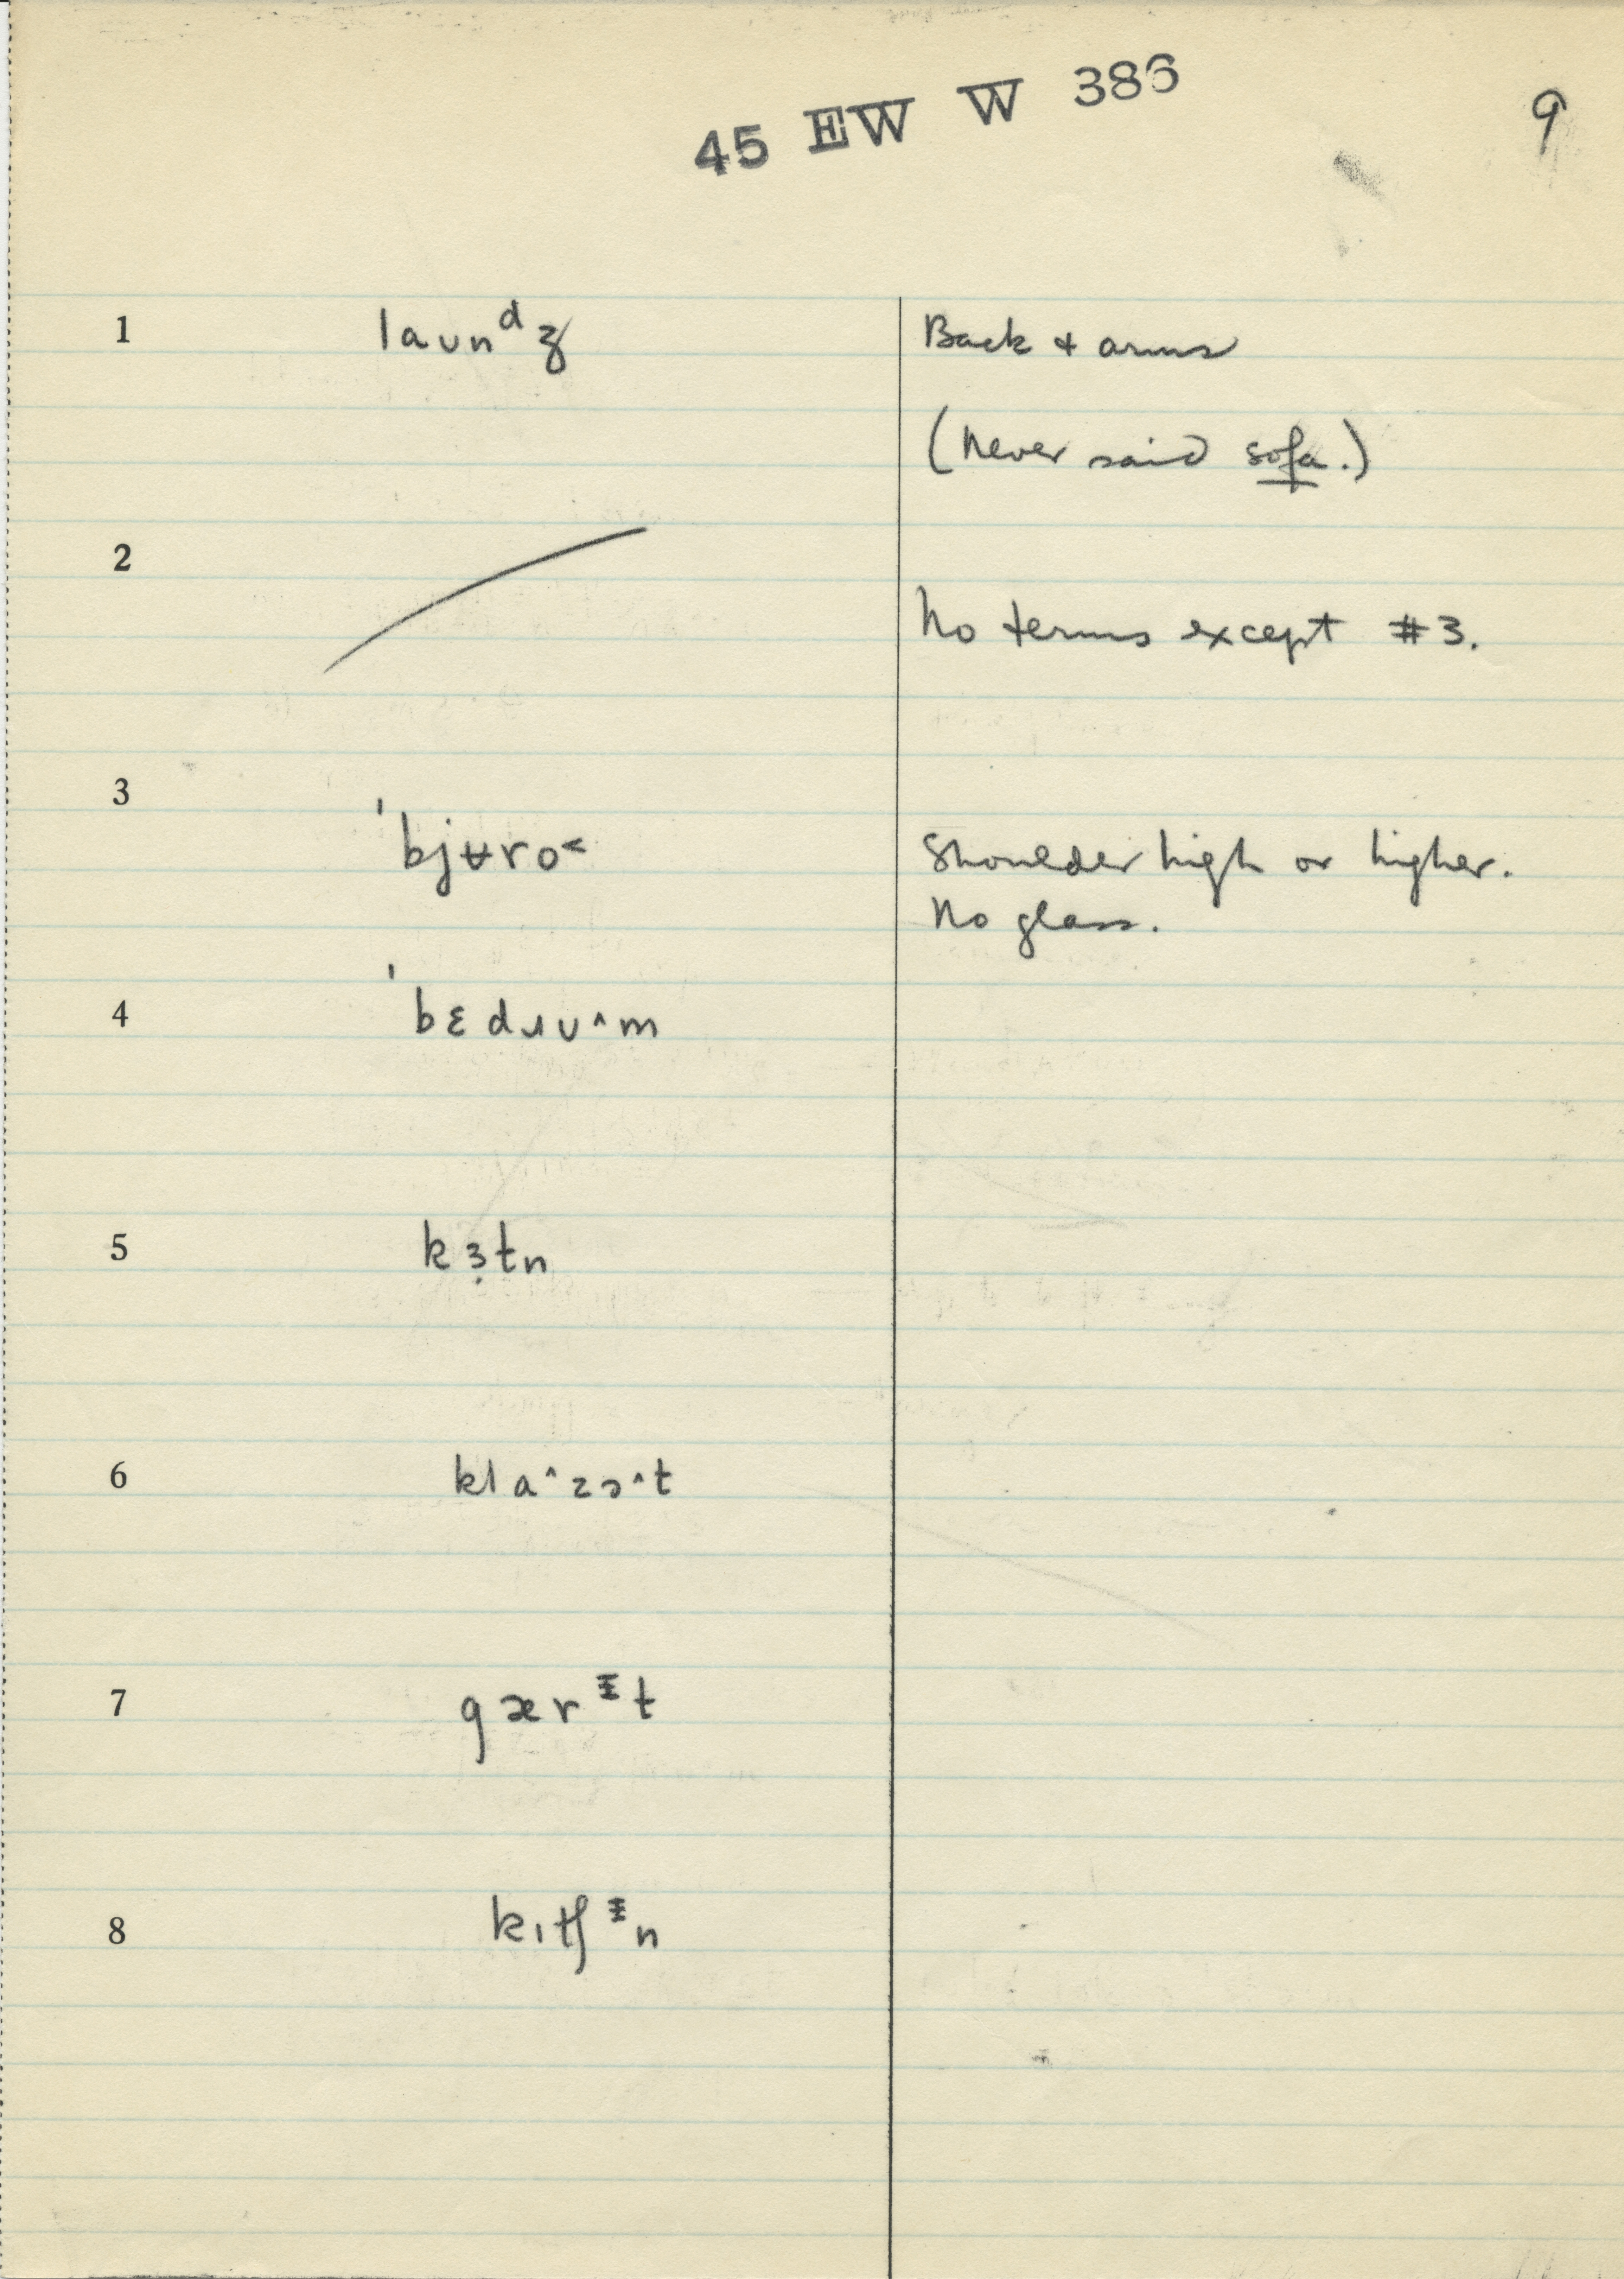 45 EW W 386
9
1 launᵈʒ Back + arms
(Never said sofa.)
2
No terms except #3.
3 ˈbjʉro˂ Shoulder high or higher.
No glass.
4 ˈbɛdɹʊ^m
5 kɜ̣tn
6 kla^zə^t
7 gærᵻt
8 kɪtʃᵻn